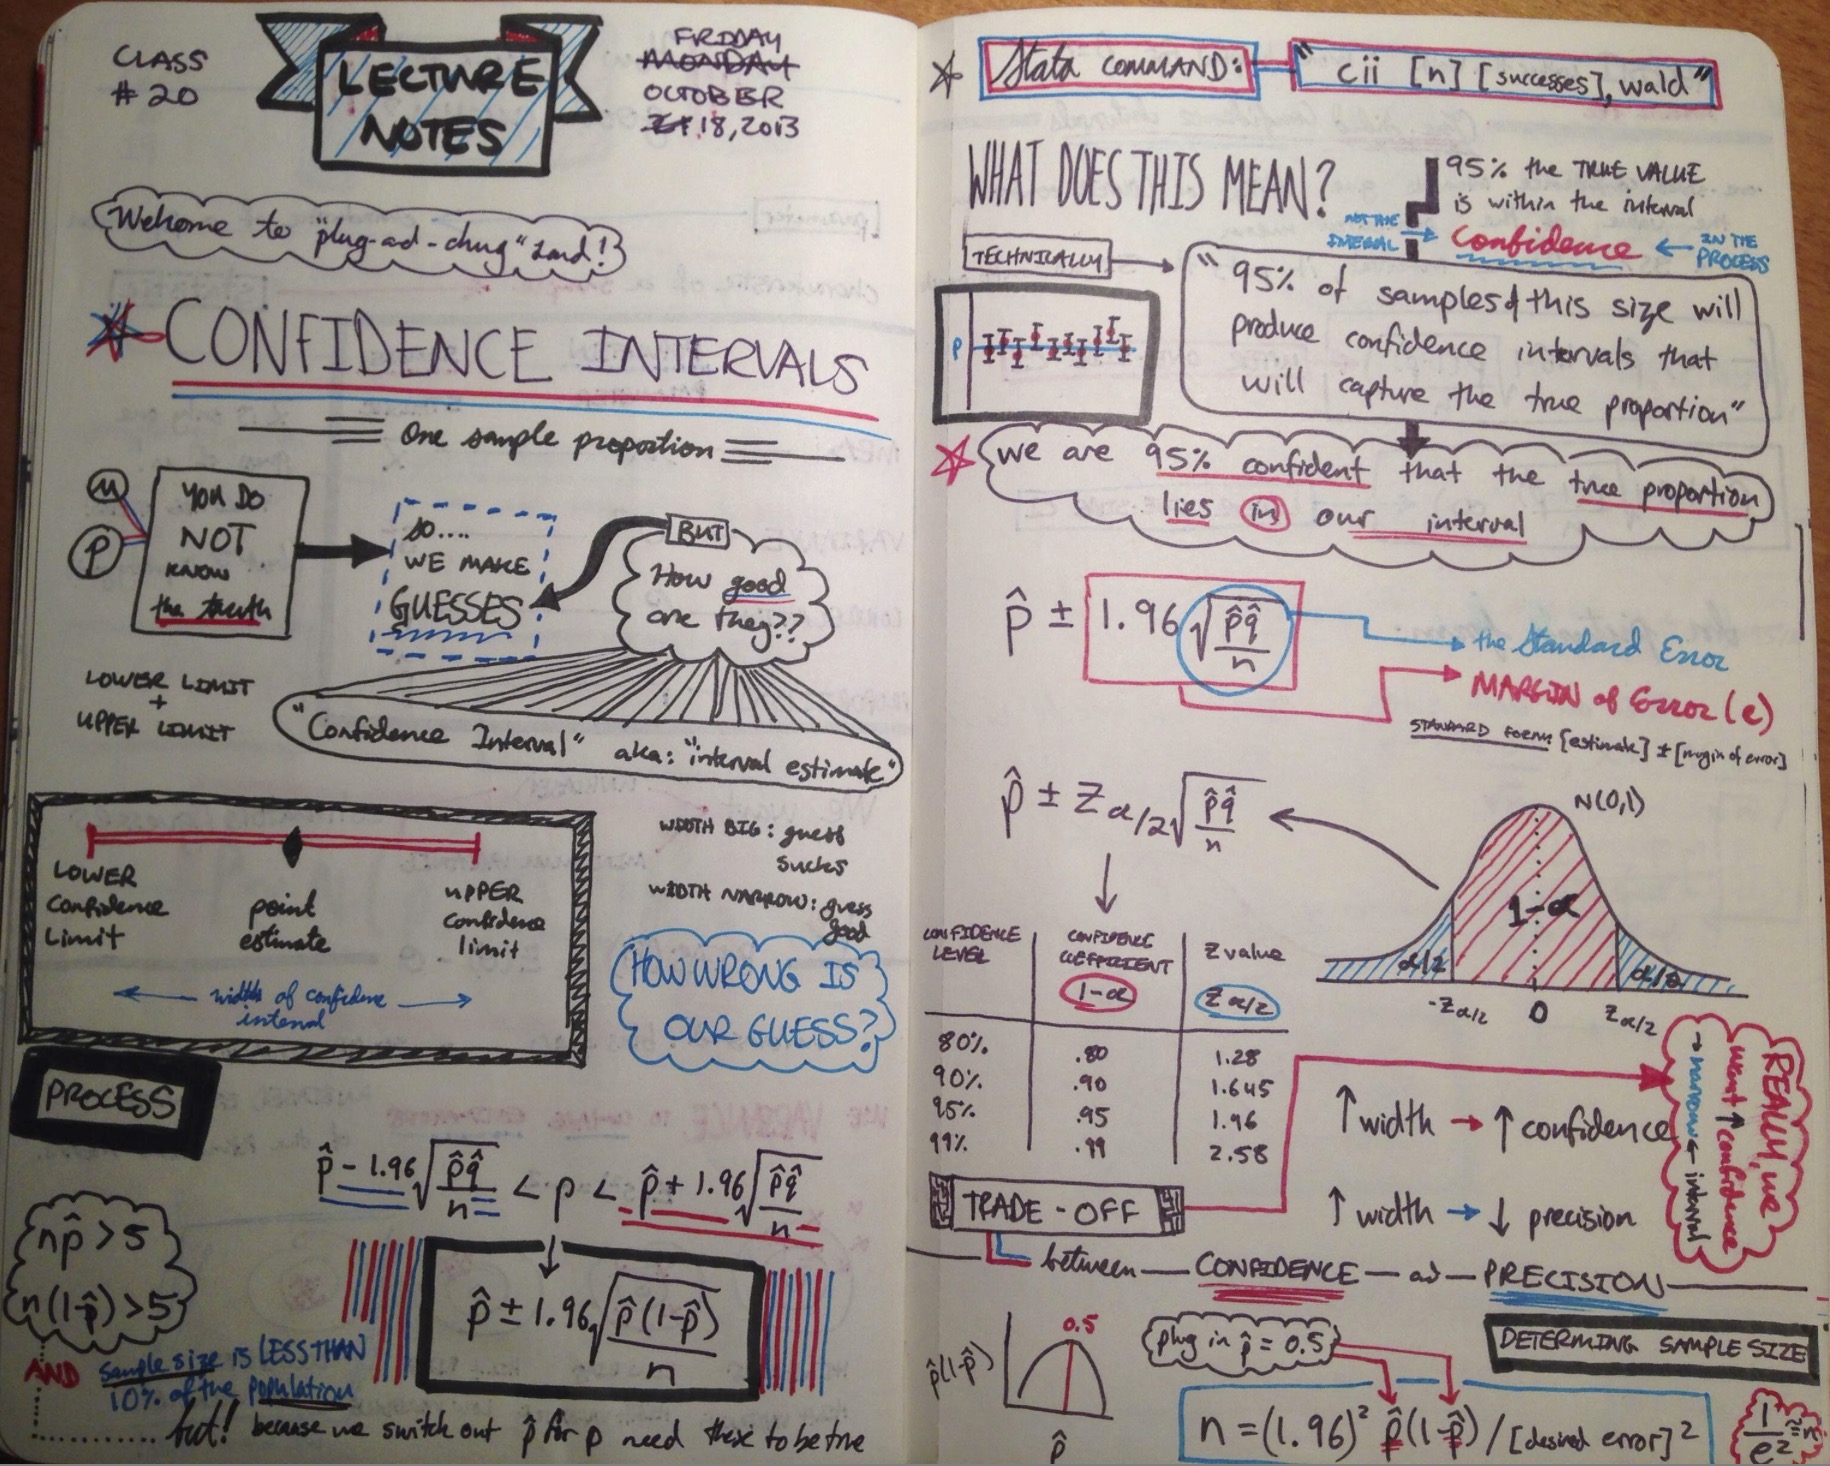 CLASS
# 20
LECTURE
NOTES
FRIDAY
MONDAY
OCTOBER
18, 2013
Welcome to "plug-ad-chug" Land!
CONFIDENCE INTERVALS
One sample proportion
μ
p
YOU DO
NOT
KNOW
the truth
so....
WE MAKE
GUESSES
BUT
How good
are they??
LOWER LIMIT
+
UPPER LIMIT
"Confidence Interval" aka: "interval estimate"
LOWER
Confidence
Limit
point
estimate
UPPER
Confidence
limit
width of confidence
interval
WIDTH BIG: guess
sucks
WIDTH NARROW: guess
good
HOW WRONG IS
OUR GUESS?
PROCESS
p̂ - 1.96 √(p̂q̂/n) < p < p̂ + 1.96 √(p̂q̂/n)
np̂ > 5
n(1-p̂) > 5
p̂ ± 1.96 √(p̂(1-p̂)/n)
AND sample size is LESS THAN
10% of the population
but! because we switch out p̂ for p need these to be true
Stata COMMAND: "cii [n] [successes], wald"
WHAT DOES THIS MEAN?
95% the TRUE VALUE
is within the interval
NOT THE
INTERVAL
Confidence
IN THE
PROCESS
TECHNICALLY
p
"95% of samples of this size will
produce confidence intervals that
will capture the true proportion"
we are 95% confident that the true proportion
lies in our interval
p̂ ± 1.96 √(p̂q̂/n)
the Standard Error
MARGIN of Error (e)
STANDARD FORM: [estimate] ± [margin of error]
p̂ ± Z α/2 √(p̂q̂/n)
N(0,1)
1-α
α/2
α/2
-Z α/2
0
Z α/2
CONFIDENCE
LEVEL
CONFIDENCE
COEFFICIENT
1-α
Z value
Z α/2
80% .80 1.28
90% .90 1.645
95% .95 1.96
99% .99 2.58
↑ width → ↑ confidence
↑ width → ↓ precision
REALLY, we
want ↑ confidence
→ narrow ← interval
TRADE-OFF
between — CONFIDENCE — ad — PRECISION
p̂(1-p̂)
0.5
p̂
plug in p̂ = 0.5
DETERMING SAMPLE SIZE
n = (1.96)² p̂(1-p̂) / [desired error]²
1/e² ≈ n